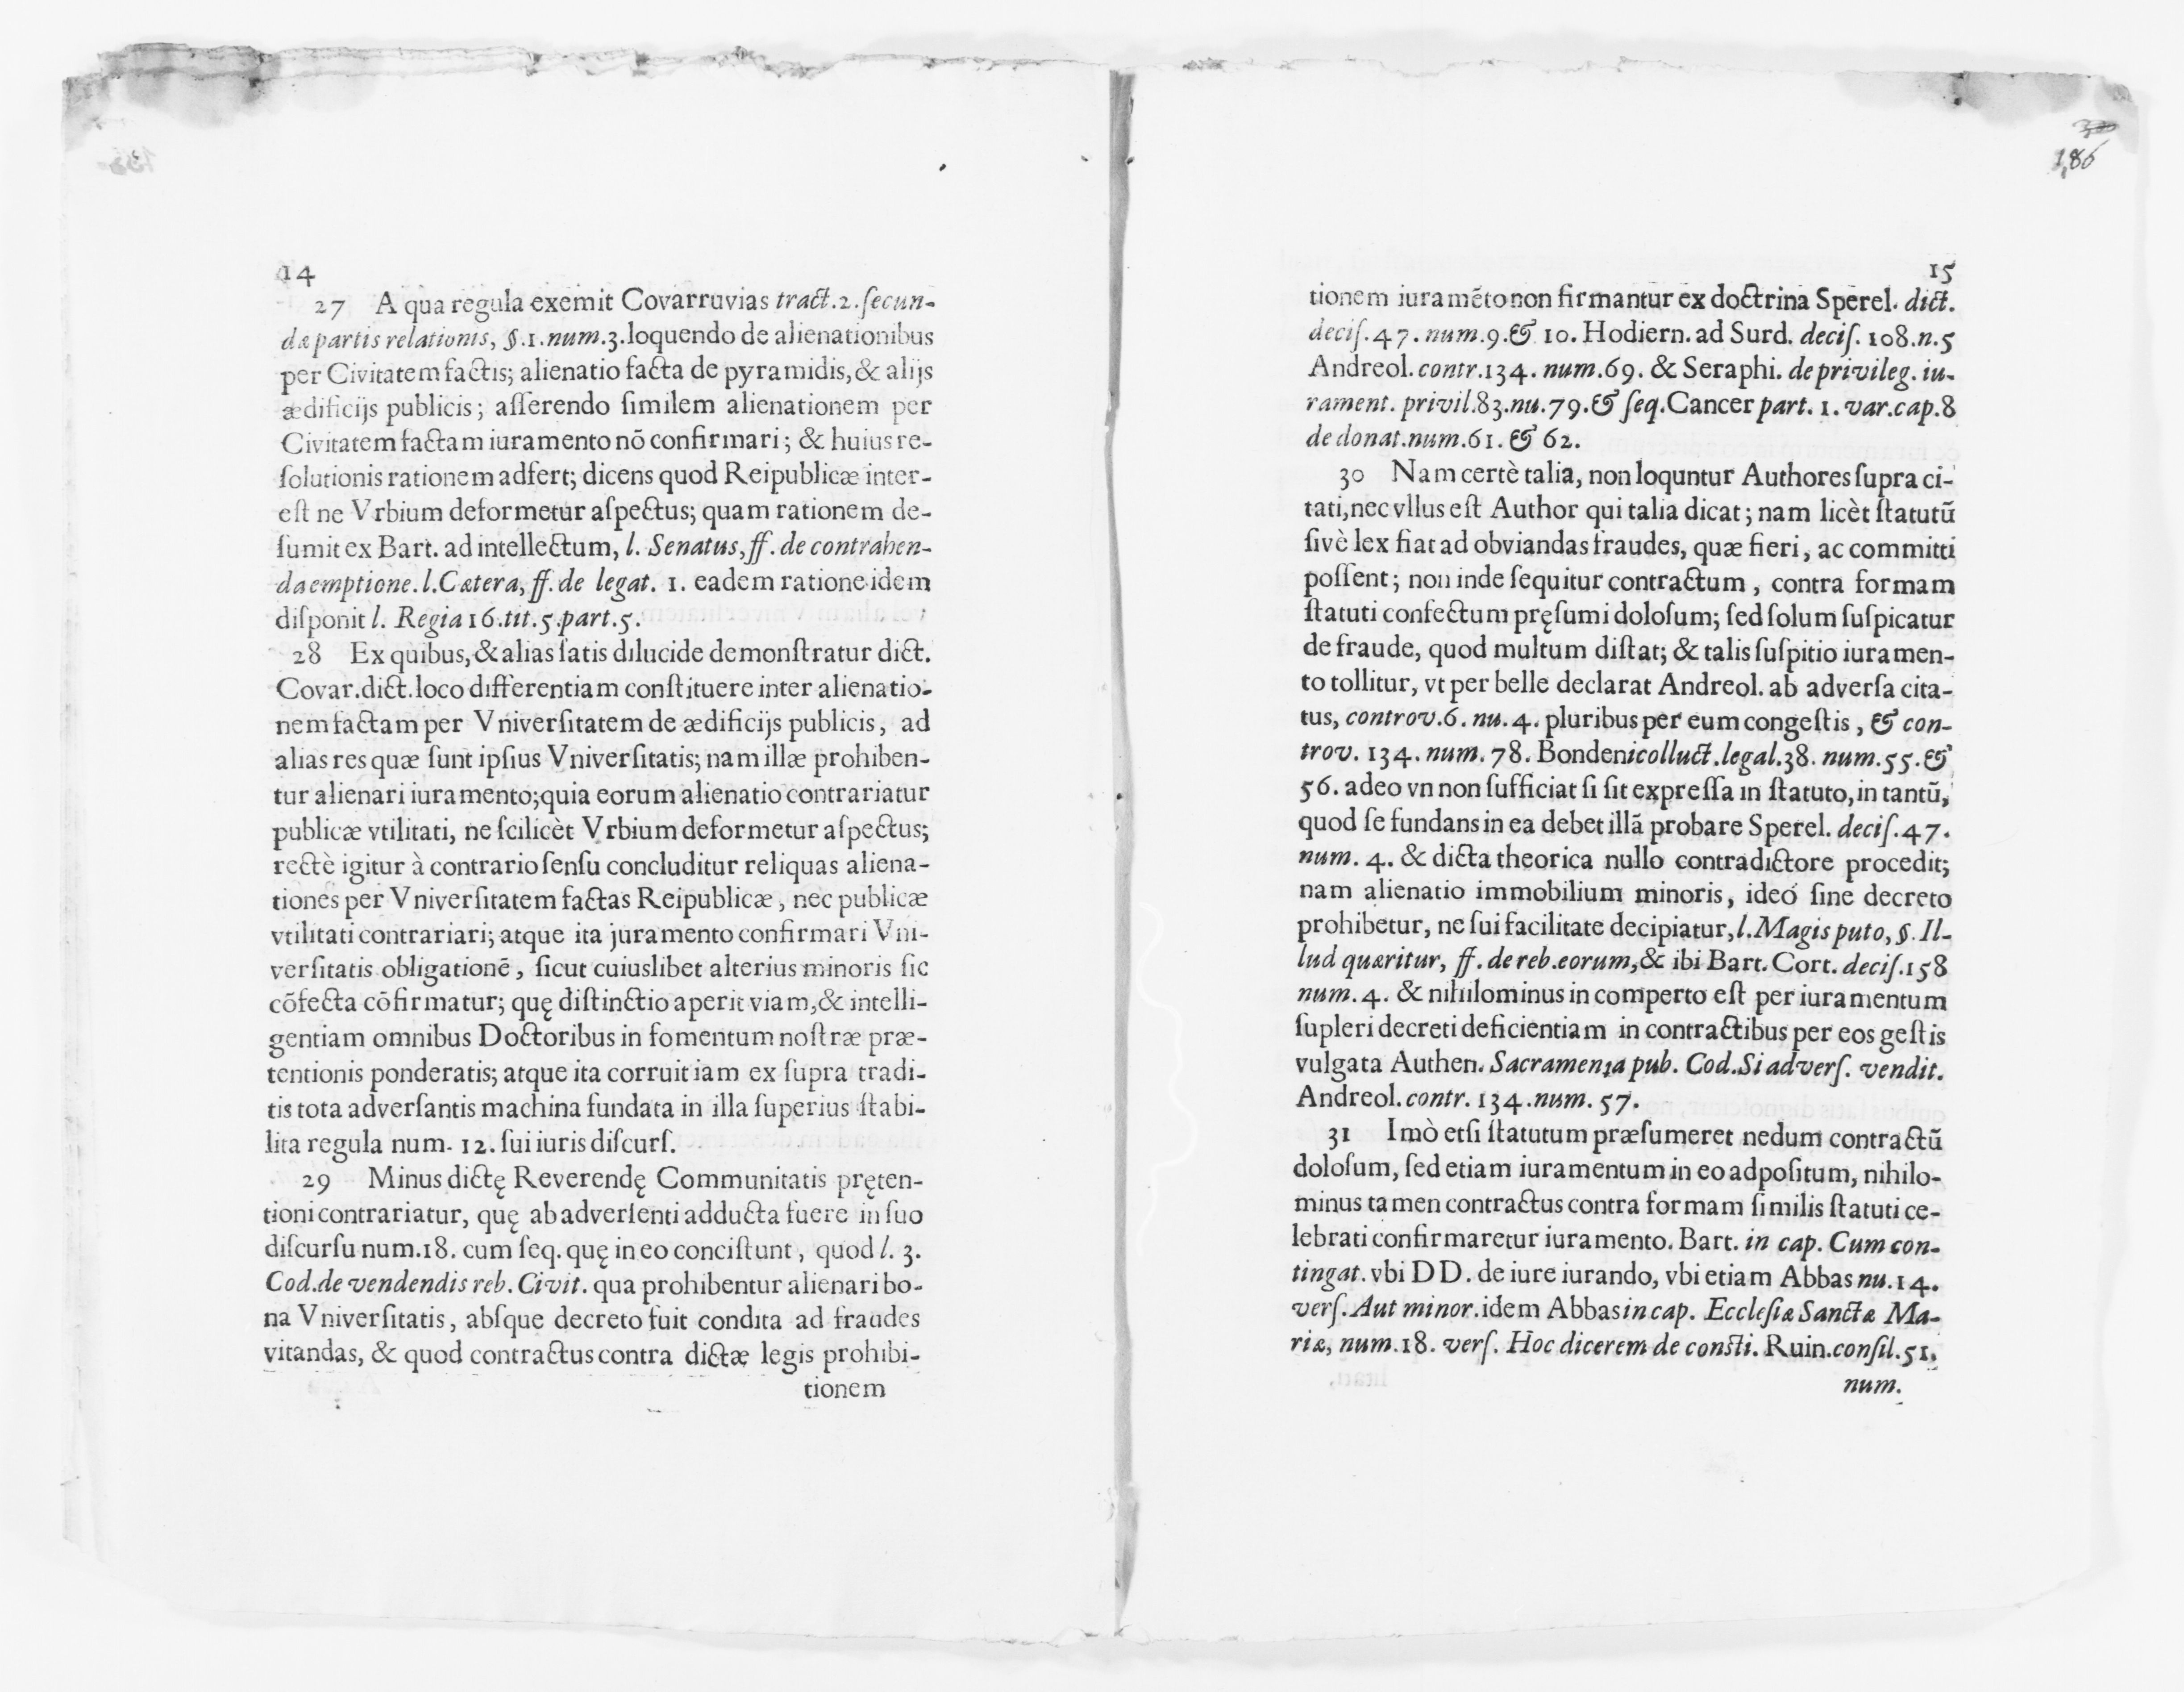 14
27 A qua regula exemit Covarruvias tract.2.ſecun-
dæ partis relationis, §.1.num.3.loquendo de alienationibus
per Civitatem factis; alienatio facta de pyramidis, & alijs
ædificijs publicis; aſſerendo ſimilem alienationem per
Civitatem factam iuramento nõ confirmari; & huius re-
ſolutionis rationem adfert; dicens quod Reipublicæ inter-
eſt ne Vrbium deformetur aſpectus; quam rationem de-
ſumit ex Bart. ad intellectum, l. Senatus, ff. de contrahen-
da emptione. l. Cætera, ff. de legat. 1. eadem ratione idem
diſponit l. Regia 16.tit.5.part.5.
28 Ex quibus, & alias ſatis dilucide demonſtratur dict.
Covar.dict.loco differentiam conſtituere inter alienatio-
nem factam per Vniverſitatem de ædificijs publicis, ad
alias res quæ ſunt ipſius Vniverſitatis; nam illæ prohiben-
tur alienari iuramento; quia eorum alienatio contrariatur
publicæ vtilitati, ne ſcilicèt Vrbium deformetur aſpectus;
rectè igitur à contrario ſenſu concluditur reliquas aliena-
tiones per Vniverſitatem factas Reipublicæ, nec publicæ
vtilitati contrariari; atque ita juramento confirmari Vni-
verſitatis obligationẽ, ſicut cuiuslibet alterius minoris ſic
cõfecta cõfirmatur; quę diſtinctio aperit viam, & intelli-
gentiam omnibus Doctoribus in fomentum noſtræ præ-
tentionis ponderatis; atque ita corruit iam ex ſupra tradi-
tis tota adverſantis machina fundata in illa ſuperius ſtabi-
lita regula num. 12. ſui iuris diſcurſ.
29 Minus dictę Reverendę Communitatis pręten-
tioni contrariatur, quę ab adverſenti adducta fuere in ſuo
diſcurſu num.18. cum ſeq. quę in eo conciſtunt, quod l. 3.
Cod.de vendendis reb. Civit. qua prohibentur alienari bo-
na Vniverſitatis, abſque decreto fuit condita ad fraudes
vitandas, & quod contractus contra dictæ legis prohibi-
tionem
186
15
tionem iuramẽto non firmantur ex doctrina Sperel. dict.
deciſ.47. num.9.& 10. Hodiern. ad Surd. deciſ. 108.n.5
Andreol. contr.134. num.69. & Seraphi. de privileg. iu-
rament. privil.83.nu.79.& ſeq. Cancer part. 1. var.cap.8
de donat.num.61. & 62.
30 Nam certè talia, non loquntur Authores ſupra ci-
tati, nec vllus eſt Author qui talia dicat; nam licèt ſtatutũ
ſivè lex fiat ad obviandas fraudes, quæ fieri, ac committi
poſſent; non inde ſequitur contractum, contra formam
ſtatuti confectum pręſumi doloſum; ſed ſolum ſuſpicatur
de fraude, quod multum diſtat; & talis ſuſpitio iuramen-
to tollitur, vt per belle declarat Andreol. ab adverſa cita-
tus, controv.6. nu.4. pluribus per eum congeſtis, & con-
trov. 134. num. 78. Bondeni colluct.legal.38. num.55.&
56. adeo vn non ſufficiat ſi ſit expreſſa in ſtatuto, in tantũ,
quod ſe fundans in ea debet illã probare Sperel. deciſ.47.
num. 4. & dicta theorica nullo contradictore procedit;
nam alienatio immobilium minoris, ideó ſine decreto
prohibetur, ne ſui facilitate decipiatur, l. Magis puto, §. Il-
lud quæritur, ff. de reb.eorum, & ibi Bart. Cort. deciſ.158
num.4. & nihilominus in comperto eſt per iuramentum
ſupleri decreti deficientiam in contractibus per eos geſtis
vulgata Authen. Sacramenta pub. Cod. Si adverſ. vendit.
Andreol. contr. 134.num. 57.
31 Imò etſi ſtatutum præſumeret nedum contractũ
doloſum, ſed etiam iuramentum in eo adpoſitum, nihilo-
minus tamen contractus contra formam ſimilis ſtatuti ce-
lebrati confirmaretur iuramento. Bart. in cap. Cum con-
tingat. vbi DD. de iure iurando, vbi etiam Abbas nu.14.
verſ. Aut minor. idem Abbas in cap. Eccleſiæ Sanctæ Ma-
riæ, num.18. verſ. Hoc dicerem de conſti. Ruin. conſil.51.
num.